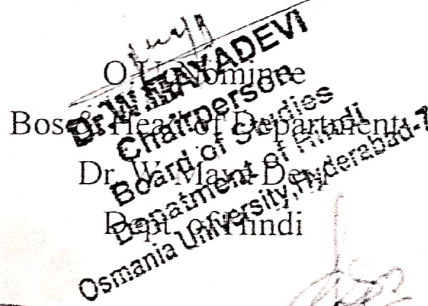 O.U. Nominee
Bos & Head of Department
Dr. W. Maya Devi
Dept. of Hindi
Chairperson
Board of Studies
Department of Hindi
Osmania University, Hyderabad-7